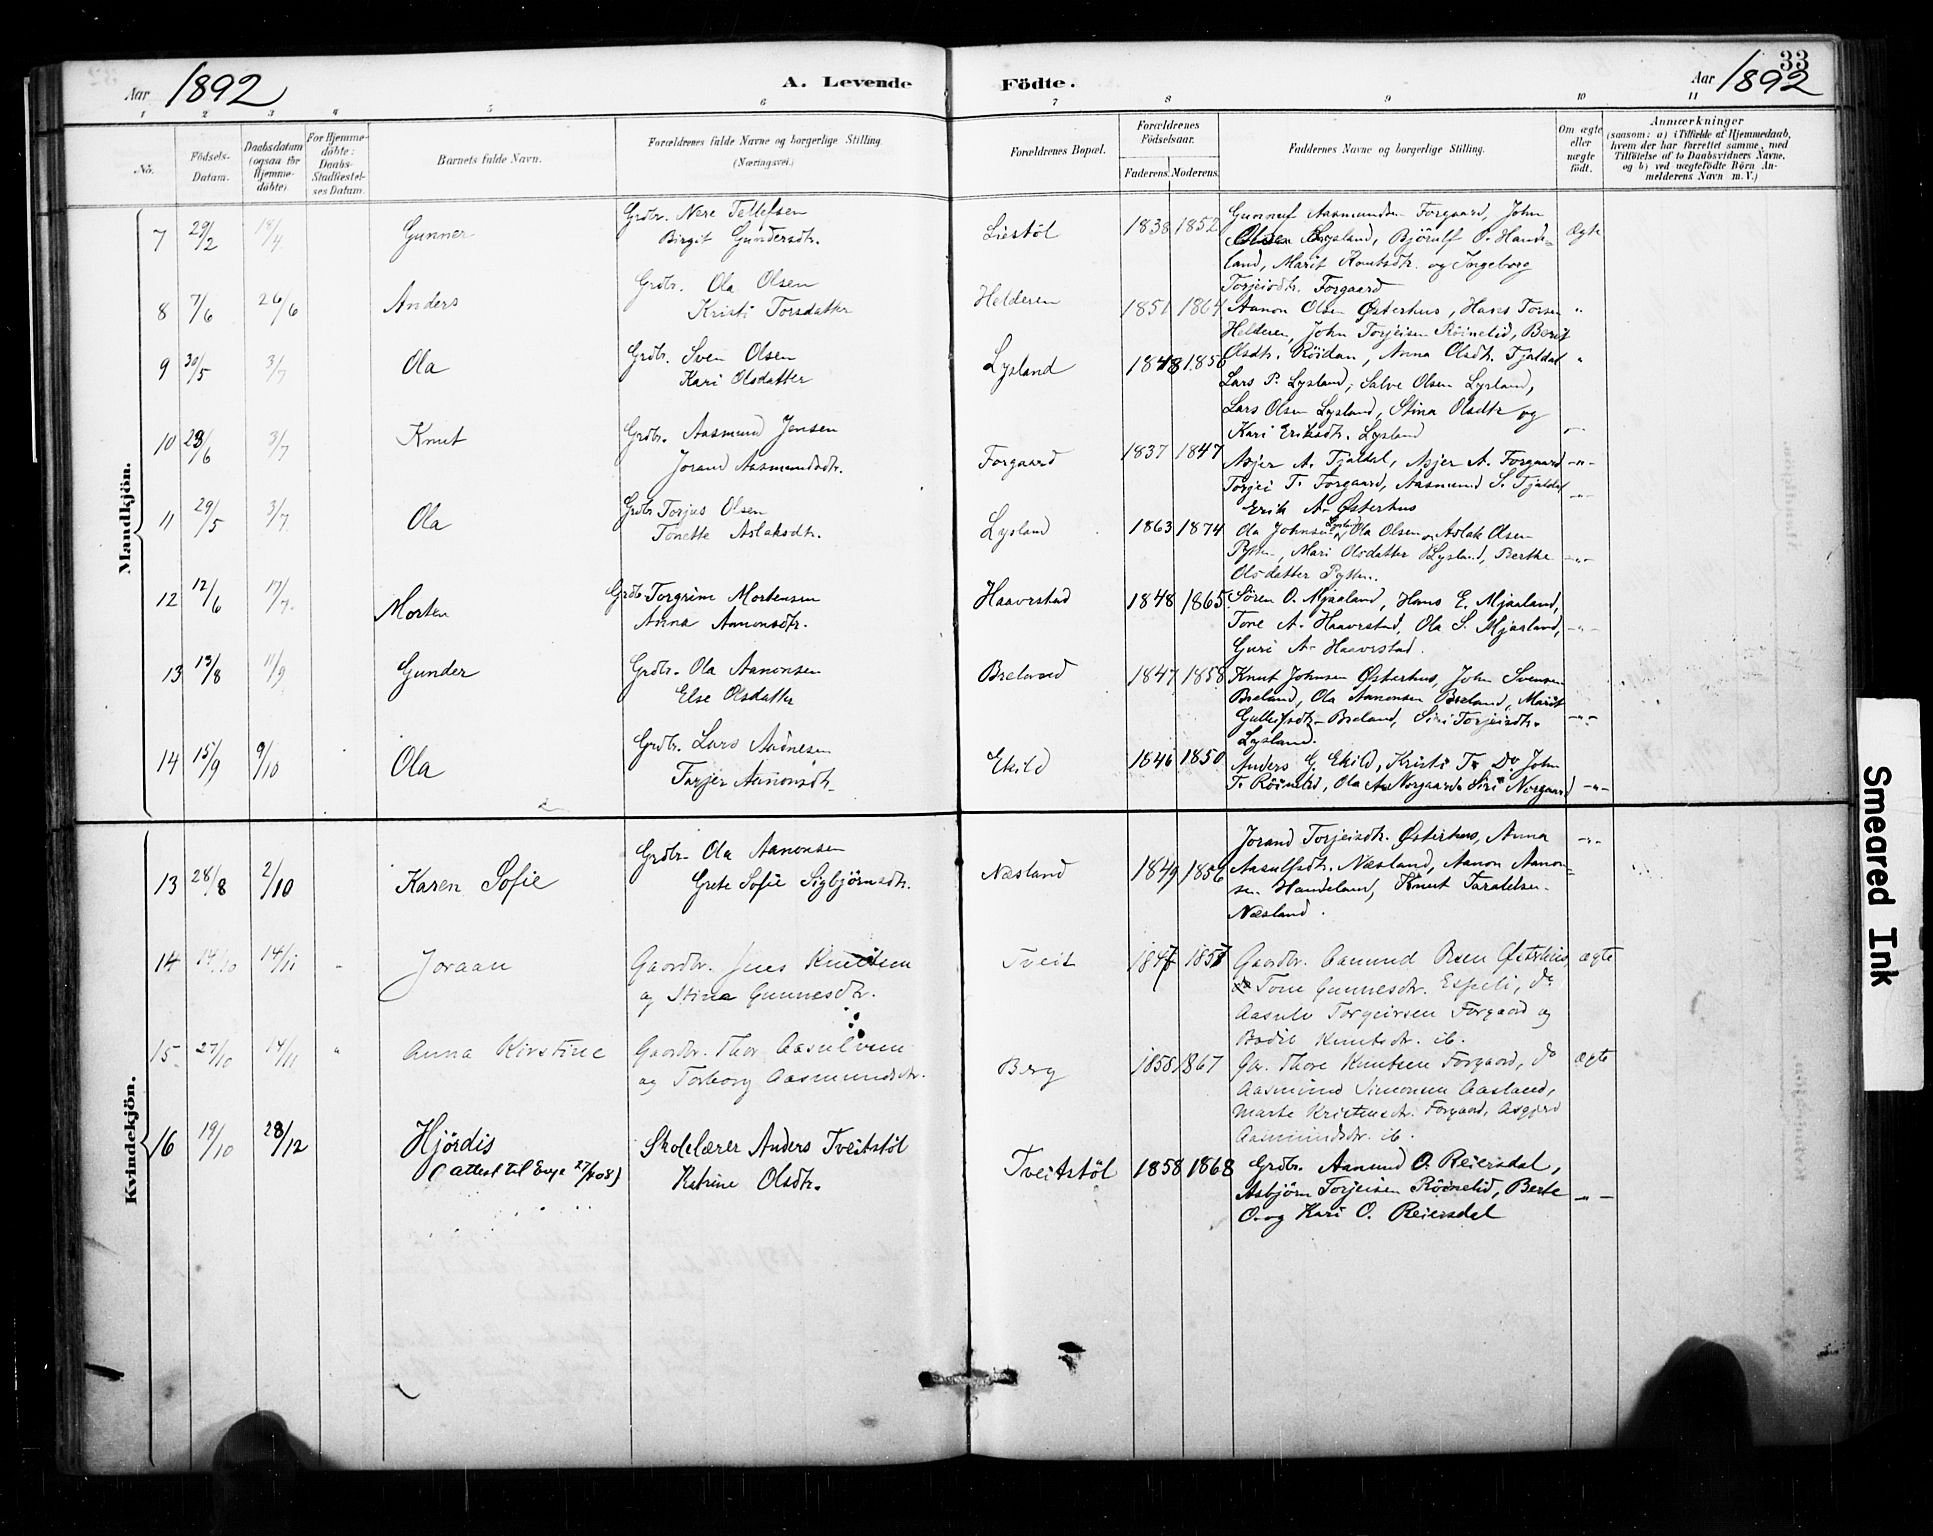 33
Aar 1892 A. Levende Födte. Aar 1892
1 2 3 4 5 6 7 8 9 10 11
No.
Födsels-Datum.
Daabsdatum (ogsaa for Hjemmedöbte).
For Hjemmedöbte: Daabs-Stadfæstelses Datum.
Barnets fulde Navn.
Forældrenes fulde Navne og borgerlige Stilling. (Næringsvei.)
Forældrenes Bopæl.
Forældrenes Födselsaar.
Faderens. Moderens.
Faddernes Navne og borgerlige Stilling.
Om ægte eller uægte födt.
Anmærkninger
(saasom: a) i Tilfælde af Hjemmedaab,
hvem der har forrettet samme, med
Tilföielse af to Daabsvidners Navne,
og b) ved uægtefödte Börn Anmelderens Navn m. V.)
Mandkjön.
7 29/2 18/4 Gunner Grdbr. Nere Tellefsen Liestöl 1838 1852 Gunnuf Aasmundsen Forgaard, John
Birgit Gundersdtr. Olsen Lysland, Björulf O. Hande- Ægte
land, Marit Knutsdtr. og Ingeborg
Torjeisdtr. Forgaard
8 7/6 26/6 Anders Grdbr. Ola Olsen Helderen 1851 1864 Aanon Olsen Østerhus, Hans Torsen "
Kristi Torsdatter Helderen, John Torjeisen Röinelid, Berit
Olsdtr. Röidan, Anna Olsdtr. Tjaldal
9 30/5 3/7 Ola Grdbr. Sven Olsen Lysland 1848 1856 "
Kari Olsdatter Lars P. Lysland, Salve Olsen Lysland,
Lars Olsen Lysland, Stina Olsdtr og
Kari Eriksdtr. Lysland
10 23/6 3/7 Knut Grdbr. Aasmund Jensen Forgaard 1837 1847 Asjer A. Tjaldal, Asjer A. Forgaard -"-
Jorand Aasmundsdtr. Torjei T. Forgaard, Aasmund S. Tjaldal
Erik A. Østerhus
11 29/5 3/7 Ola Grdbr Torjus Olsen Lysland 1863 1874 Ola Johnsen Lysland Ola Olsen Aslak Olsen
Tonette Aslaksdtr. Mari Olsdatter Lysland, Berthe -"-
Olsdatter
12 12/6 17/7 Morten Grdbr Torgrim Mortensen Haavrstad 1848 1865 Sören O. Mjaaland, Hans E. Mjaaland,
Anna Aanonsdtr. Tone A. Haavrstad, Ola S. Mjaaland, -"-
Guri A. Haavrstad.
13 13/8 11/9 Gunder Grdbr. Ola Aanonsen Breland 1847 1858 Knut Johnsen Østerhus, John Svensen
Else Olsdatter Breland, Ola Aanonsen Breland, Marit
Breland, Siri Torjeisdtr. -"-
Lysland.
14 15/9 9/10 Ola Grdbr. Lars Ekild 1846 1850 Anders G. Ekild, Kristi T. Do John
Aanonsdtr. T. Röinelid, Ola A. Norgaard Siri Norgaard -"-
Kvindekjön.
13 28/8 2/10 Karen Sofie Grdbr. Ola Aanonsen Næsland 1849 1856 Jorand Torjeisdtr. Østerhus, Anna -"-
Grete Sofie Sigbjörnsdtr. Aasulfsdtr. Næsland, Aanon Aanon-
sen Handeland, Knut Taraldsen
Næsland.
14 14/10 14/11 " Joraan Gaardbr. Jens Knudsen Tveit Gaardbr. Aamund Østerhus, ægte
og Stine Gunnesdtr. Tone Gunnesdtr. Espeli, do
Torgeirsen Forgaard og
Bodil Knutsdtr. ib.
15. 27/10 14/11 " Anna Kirstine Gaardbr. Thor Berg 1858 1867 Gbr. Thore Knutsen Forgaard, do ægte
og Torborg Aasmundsdtr. Aasmund Simonsen Aasland,
Marte Kristensdtr. Forgaard, Asgjerd
Aasmundsdtr. ib.
16 19/10 28/12 Hjördis Skolelærer Anders Tveitstöl Tveitstöl 1858 1868 Grdbr. Aamund O. Reiersdal,
(attest til Evje 27/4 08) Katrine Olsdtr. Asbjörn Torjeisen Röinelid, Berte -"-
O. og Kari O. Reiersdal
Smeared Ink